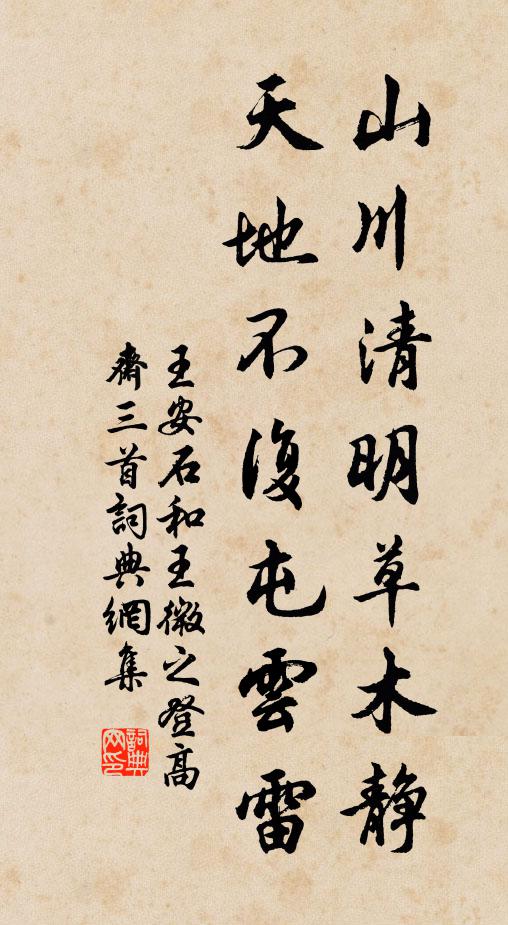 山川清明草木静
天地不復屯雲雷
王安石和王微之登高
齋三首詞典網集
詞典
网印